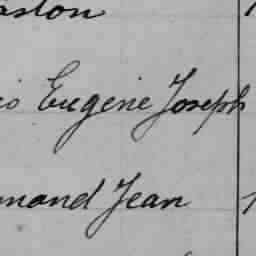 aston
is Eugène Joseph
mand Jean